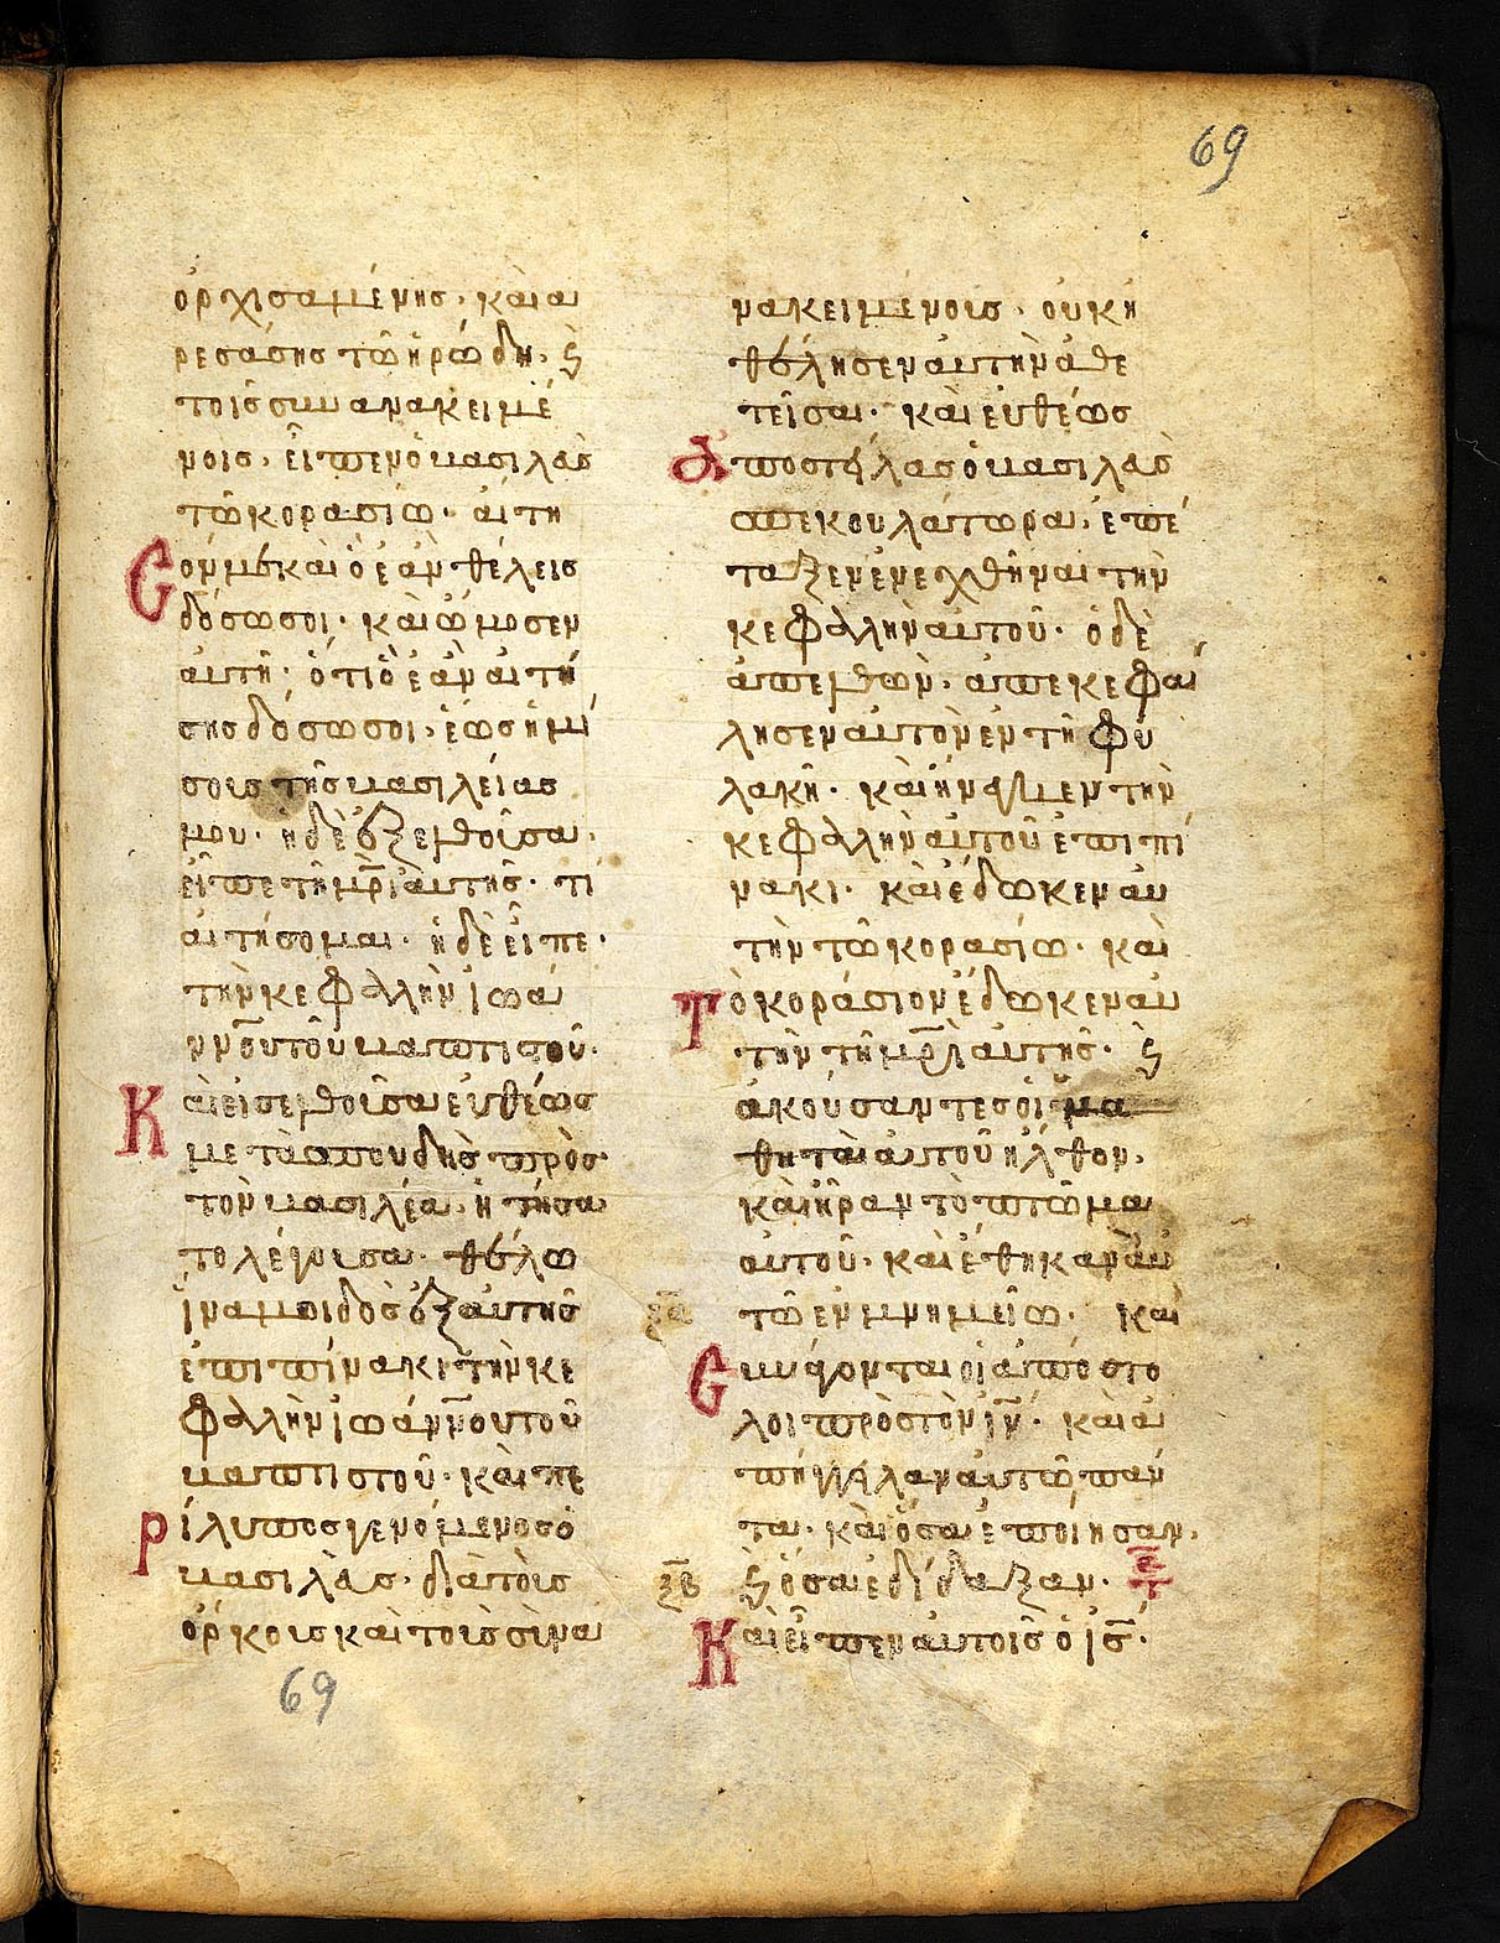 69
ὀρχισαμένης· καὶ ἀ
ρεσάσης τῶ ἡρώδη· ϗ
τοῖς συνανακειμέ
νοις· εἶπεν ὁ βασιλεὺς
τῶ κορασίω· αἴτη
σόν με καὶ ὃ ἐὰν θέλεις
δόσω σοι· καὶ ὤμοσεν
αὐτῆ· ὅτι ὃ ἐὰν αἰτή
σης δόσω σοι· ἕως ἡμί
σους τῆς βασιλείας
μου· ἡ δὲ ἐξελθοῦσα·
εἶπε τῆ μρ̅ὶ αὐτῆς· τί
αἰτήσομαι· ἡ δὲ εἶπε·
τὴν κεφαλὴν ἰωά
νν̅ου τοῦ βαπτιστοῦ·
Καὶ εἰσελθοῦσα εὐθέως
μετὰ σπουδῆς πρὸς
τὸν βασιλέα· ἠτήσα
το λέγουσα· θέλω
ἵνα μοι δὸς ἐξαυτῆς
ἐπὶ πίνακι τὴν κε
φαλὴν ἰωάνν̅ου τοῦ
βαπτιστοῦ· καὶ πε
ρίλυπος γενόμενος ὁ
βασιλεὺς· διὰ τοὺς
ὅρκους καὶ τοὺς συνα
69
νακειμένους· οὐκ ἠ
θέλησεν αὐτὴν ἀθε
τεῖσαι· καὶ εὐθέως
ἀποστείλας ὁ βασιλεὺς
σπεκουλάτωρα· ἐπέ
ταξεν ἐνεχθῆναι τὴν
κεφαλὴν αὐτοῦ· ὁ δὲ
ἀπελθὼν· ἀπεκεφά
λησεν αὐτὸν ἐν τῆ φυ
λακῆ· καὶ ἤνεγκεν τὴν
κεφαλὴν αὐτοῦ ἐπι πί
νακι· καὶ ἔδωκεν αὐ
τὴν τῶ κορασίω· καὶ
Τὸ κοράσιον ἔδωκεν αὐ
τὴν τῆ μρ̅ὶ αὐτῆς· ϗ
ἀκούσαντες οἱ μα
θηταὶ αὐτοῦ ἦλθον·
καὶ ἦραν τὸ πτῶμα
αὐτοῦ· καὶ ἔθηκαν αὐ
ξα̅ τῶ ἐν μνημείω· καὶ
Συνάγονται οἱ ἀπόστο
λοι πρὸς τὸν ιν̅· καὶ ἀ
πήγγειλαν αὐτῶ πάν
τα· καὶ ὅσα ἐποίησαν·
ξβ̅ ϗ ὅσα ἐδίδαξαν· ετ̅
Καὶ εἶπεν αὐτοῖς ὁ ις̅·